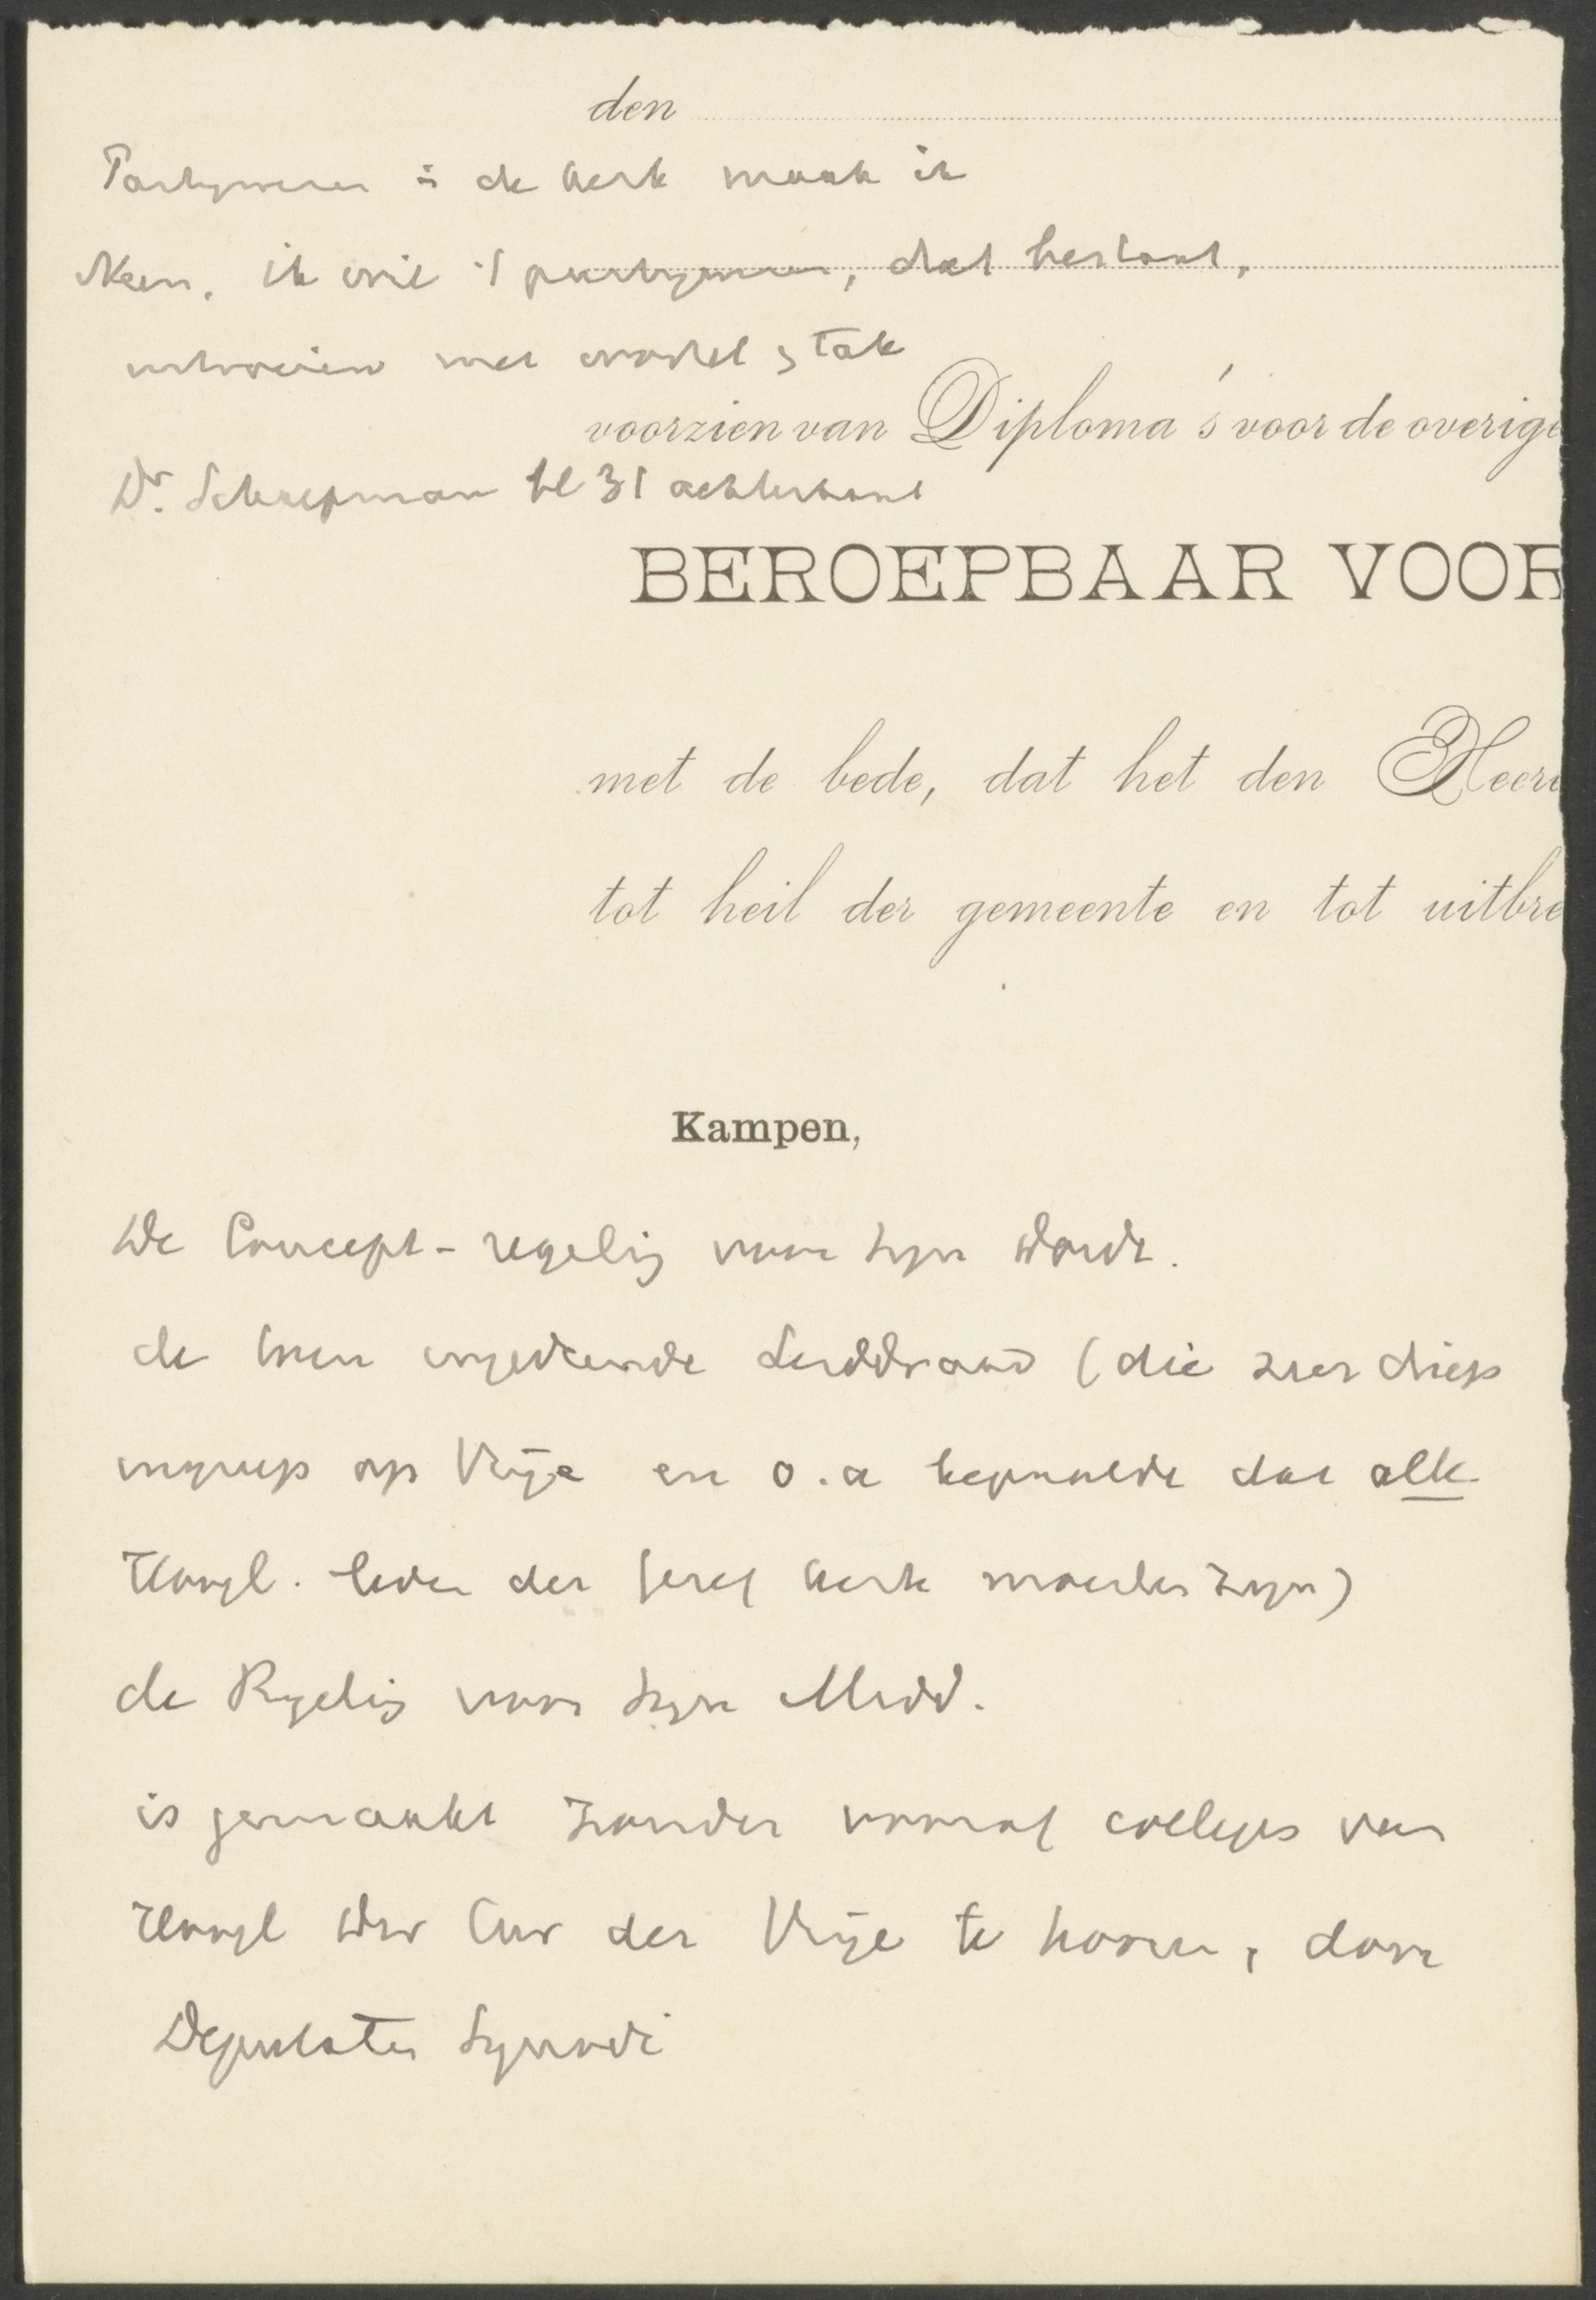 den
Partijwezen in de kerk maak ik
Neen, ik wil 't partijwezen, dat bestaat,
uitroeien met wortel & tak
voorzien van Diploma's voor de overige
Dr. Schaepman bl 31 achterkant
BEROEPBAAR VOOR
met de bede, dat het den Heere
tot heil der gemeente en tot uitbre
Kampen,
De Concept-regeling voor Syn Dordr.
de toen ingediende (die zeer diep
ingreep op Vrije en o.a bepaalde dat alle
Hoogl. leden der Geref kerk moesten zijn)
de Regeling voor Syn Midd.
is gemaakt zonder vooraf colleges van
Hoogl Dir Cur der Vrije te hooren, door
Deputaten Synodi